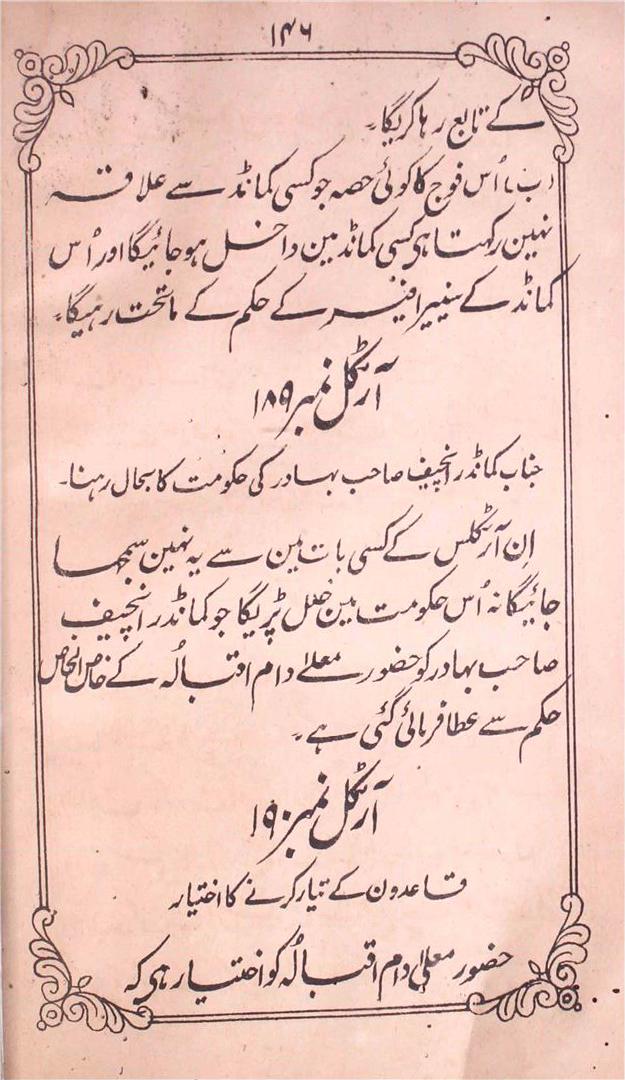 ۱۴۶
کے تابع رہا کریگا۔
(ب) اُس فوج کا کوئی حصہ جو کسی کمانڈ سے علاقہ
نہین رکہتا ہی کسی کمانڈ مین داخل ہو جائیگا اور اُس
کمانڈ کے سنییر افیسر کے حکم کے ماتحت رہیگا۔
آرٹکل نمبر ۱۸۹
جناب کمانڈر انچیف صاحب بہادر کی حکومت کا بحال رہنا۔
اِن آرٹکلس کے کسی بات مین سے یہ نہین سمجہا
جائیگا نہ اُس حکومت مین خلل پڑیگا جو کمانڈر انچیف
صاحب بہادر کو حضور معلےٰ دام اقبالُہ کے خاص الخاص
حکم سے عطا فرمائی گئی ہے۔
آرٹکل نمبر ۱۹۰
قاعدون کے تیار کرنے کا اختیار
حضور معلےٰ دام اقبالُہ کو اختیار ہی کہ